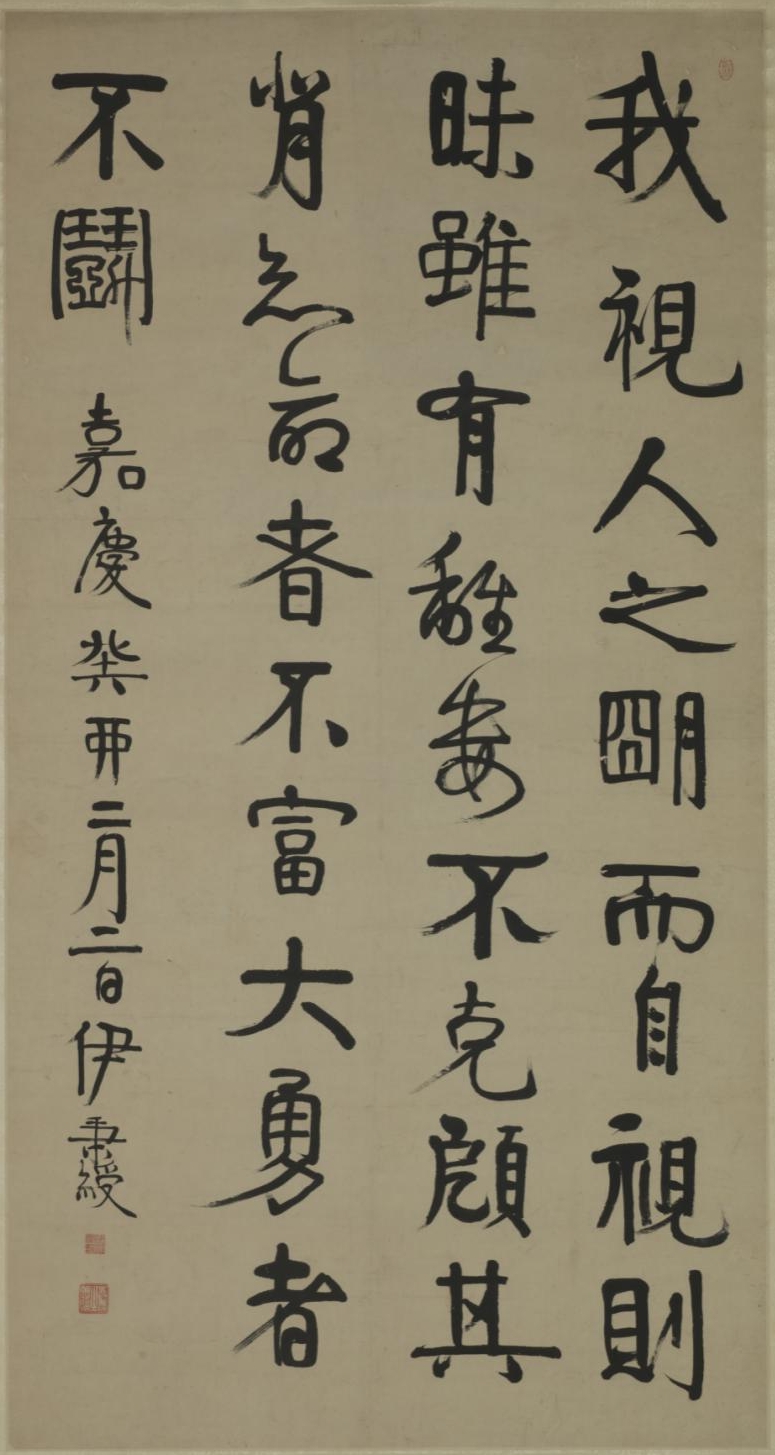 我視人之朙而自視則
昧雖有離婁不克顧其
背者不富大勇者
不鬭 嘉慶癸亥二月二日伊秉綬